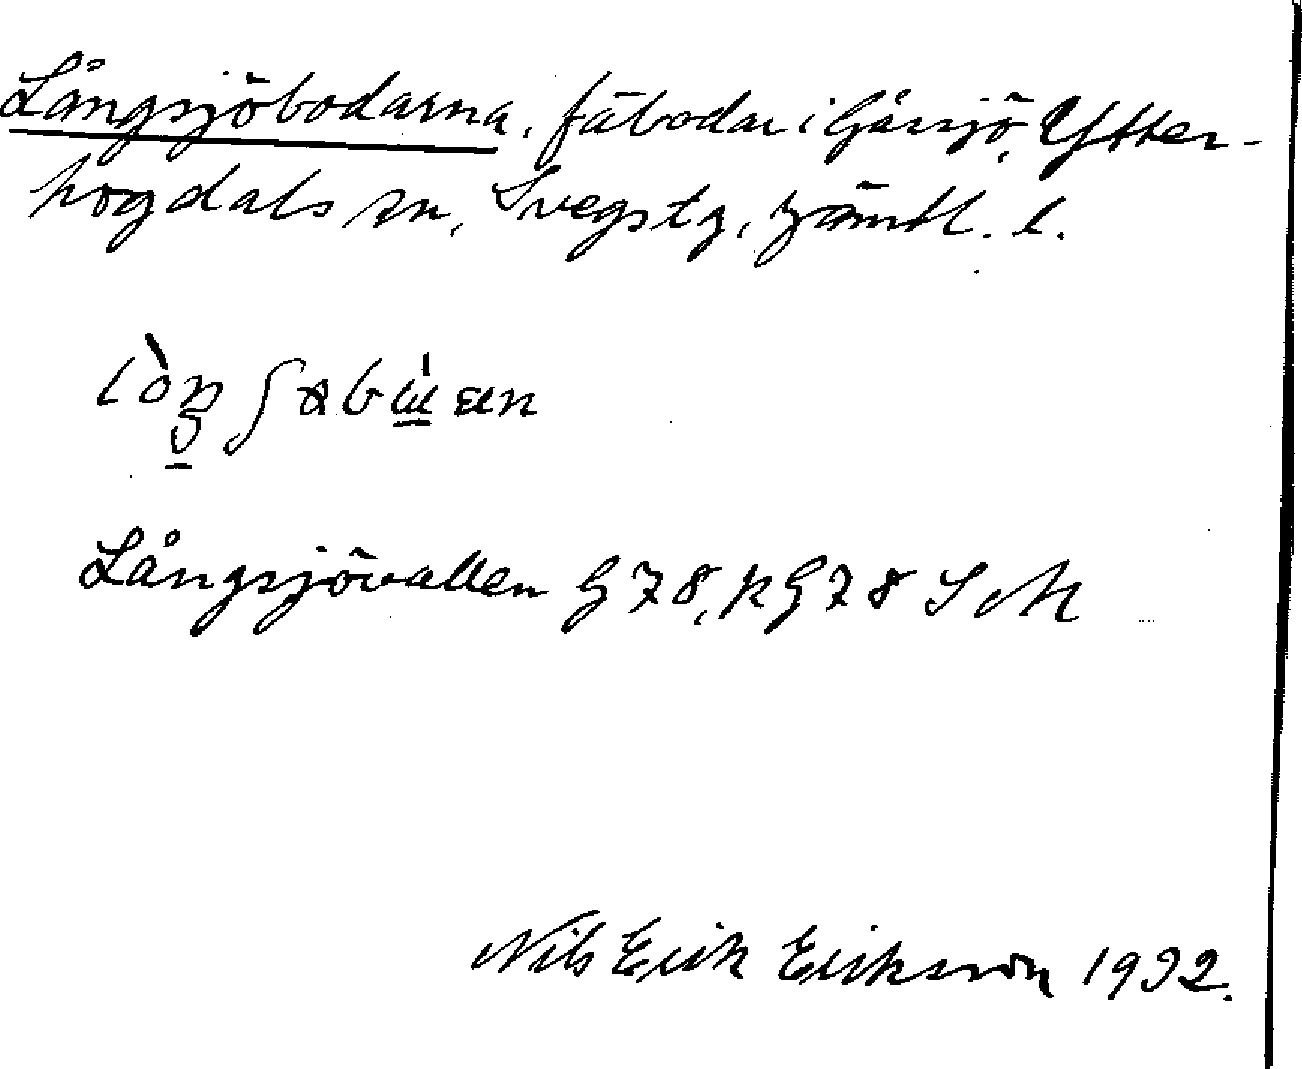 Långsjöbodarna, fäbodar i Gårsjö, Ytter-
hogdals sn, Svegs tg, Jämtl. l.
Långsjövallen G 78, k G 78 S
Nils Erik Eriksson 1932.